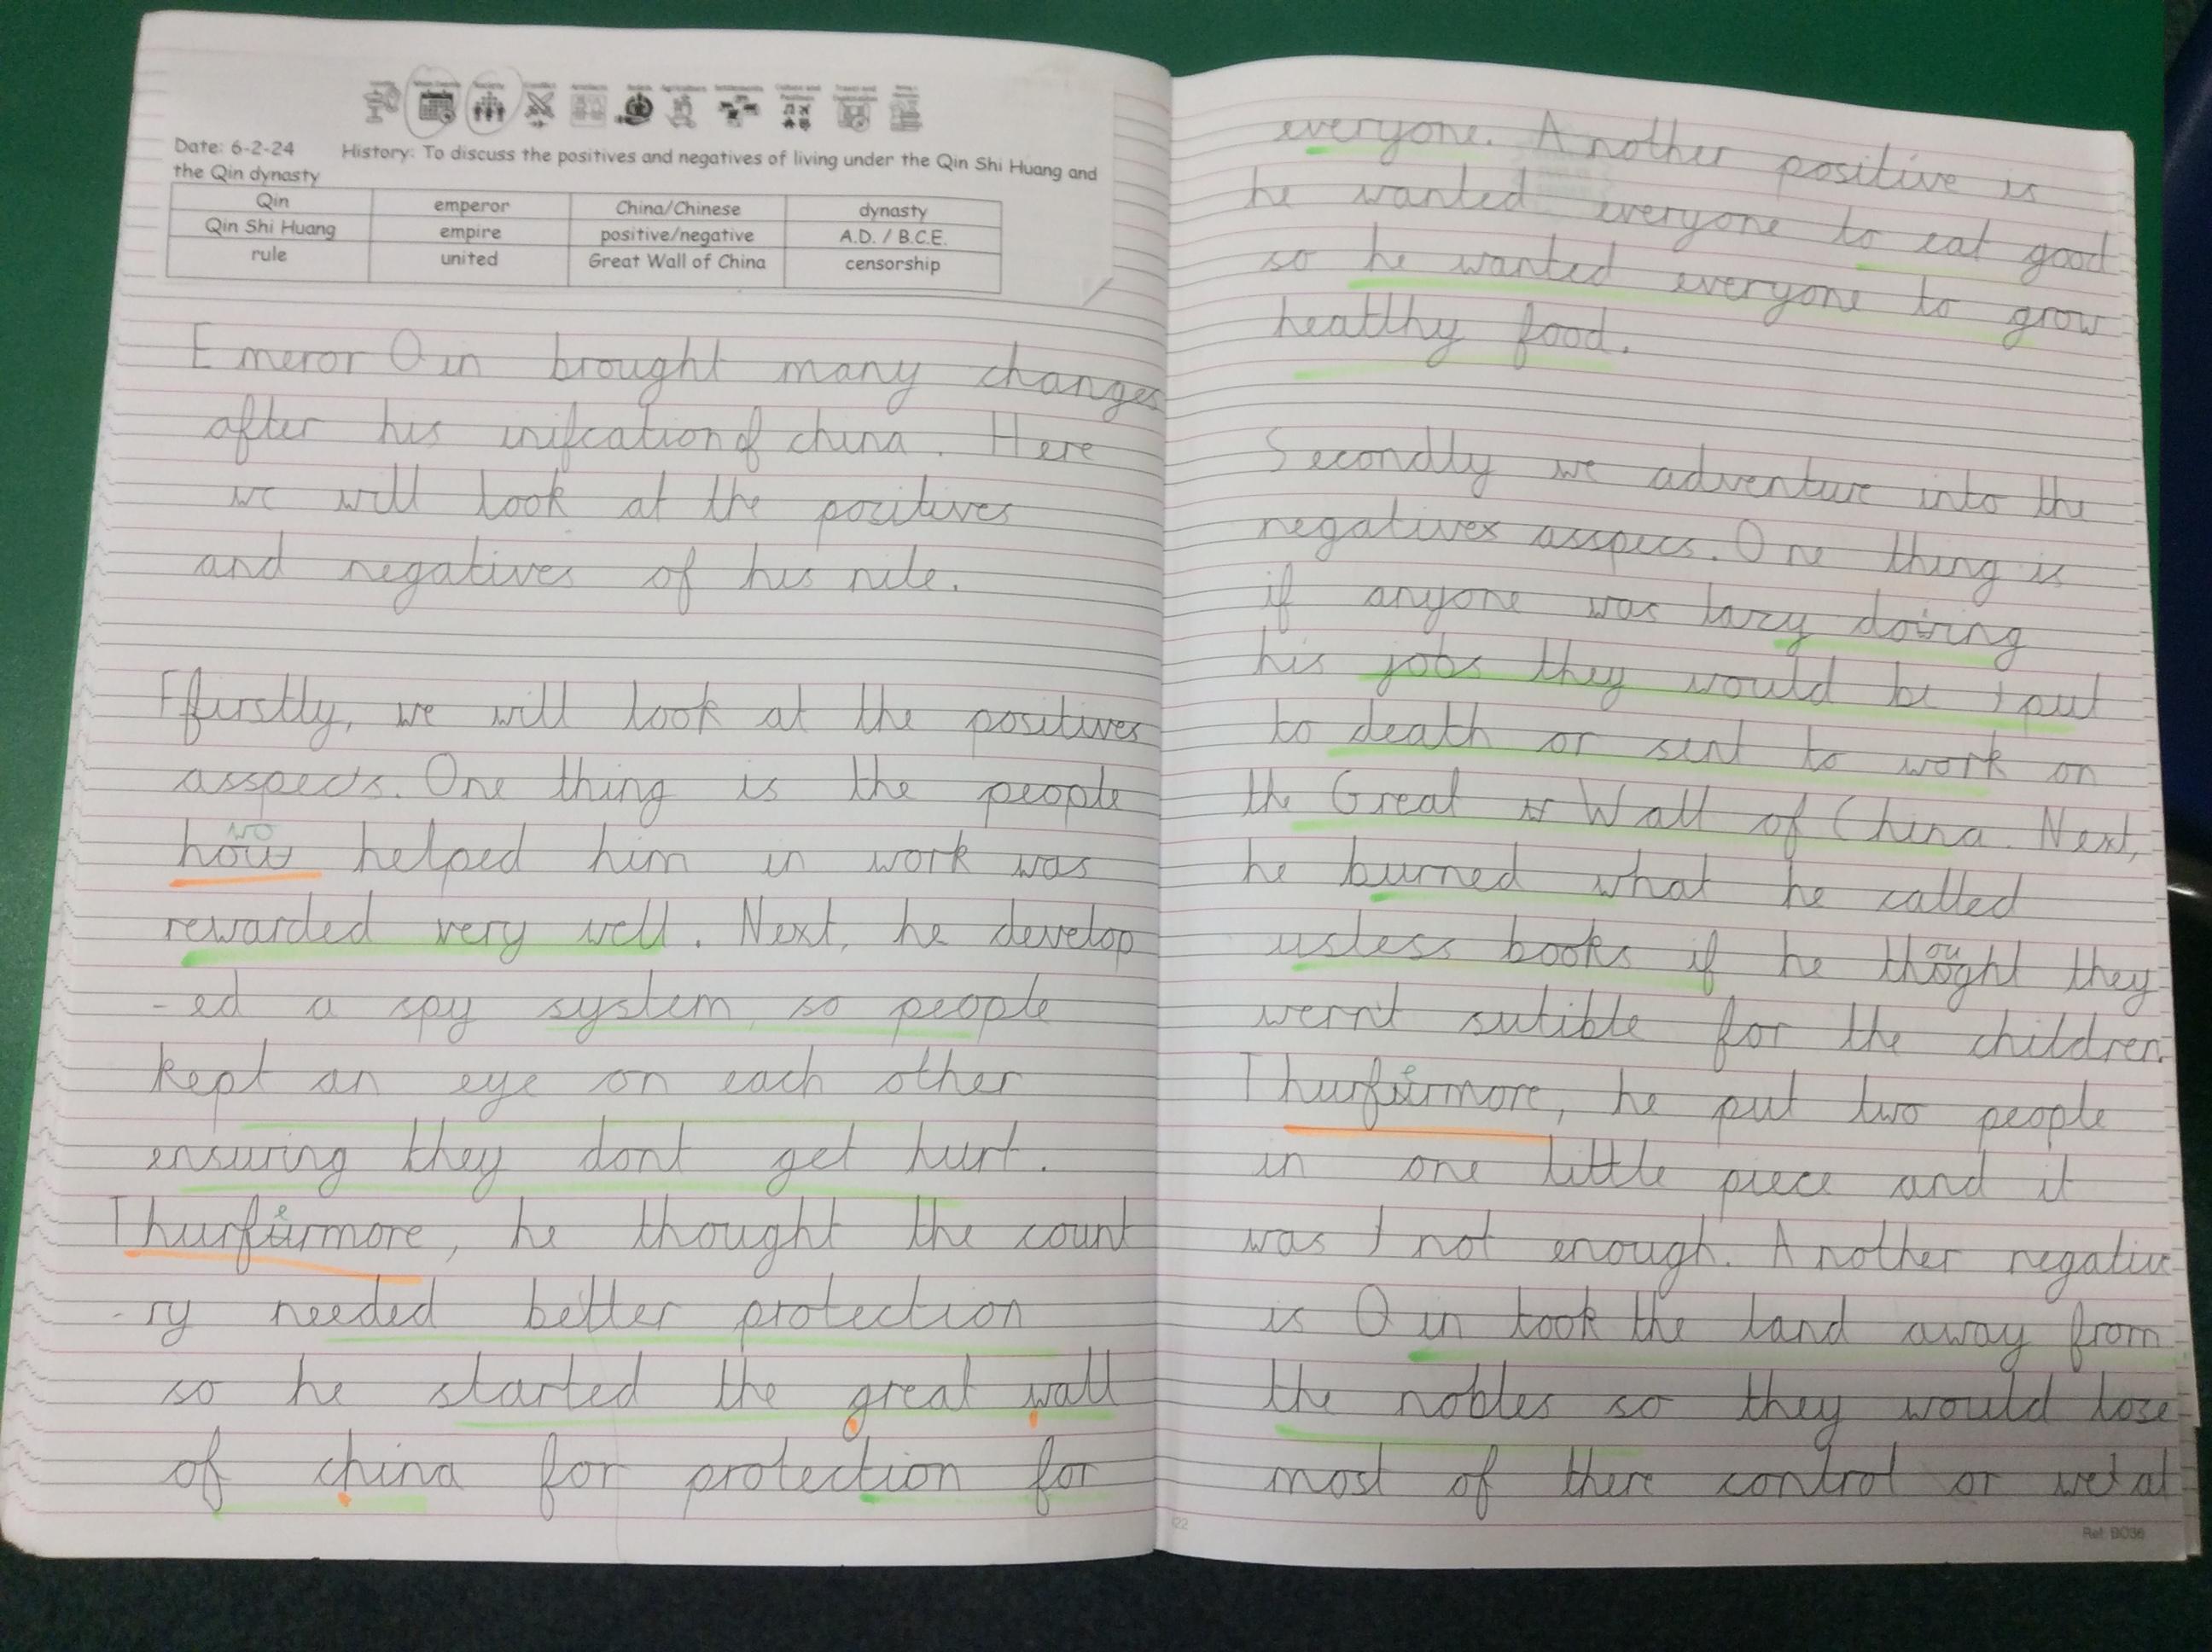 Date: 6-2-24 History: To discuss the positives and negatives of living under the Qin Shi Huang and
the Qin dynasty
Qin emperor China/Chinese dynasty
Qin Shi Huang empire positive/negative A.D. / B.C.E.
rule united Great Wall of China censorship
Emeror Qin brought many changes
after his unifcation of china. Here
we will look at the positives
and negatives of his rule.
Ffirstly, we will look at the positives
asspects. One thing is the people
wo
how helped him in work was
rewarded very well. Next, he develop
-ed a spy system, so people
kept an eye on each other
ensuring they dont get hurt.
Thurfurmore, he thought the count
-ry needed better protection
so he started the great wall
of china for protection for
everyone. Another positive is
he wanted everyone to eat good
so he wanted everyone to grow
healthy food.
Secondly we adventure into the
negatives asspecs. One thing is
if anyone was lazy doiring
his jobs they would be put
to death or sent to work on
the Great Wall of China. Next,
he burned what he called
usless books if he thought they
wernt sutible for the children.
Thurfurmore, he put two people
in one little piece and it
was not enough. Another negative
is Qin took the land away from
the nobles so they would lose
most of there control or
122
Ref: BO36